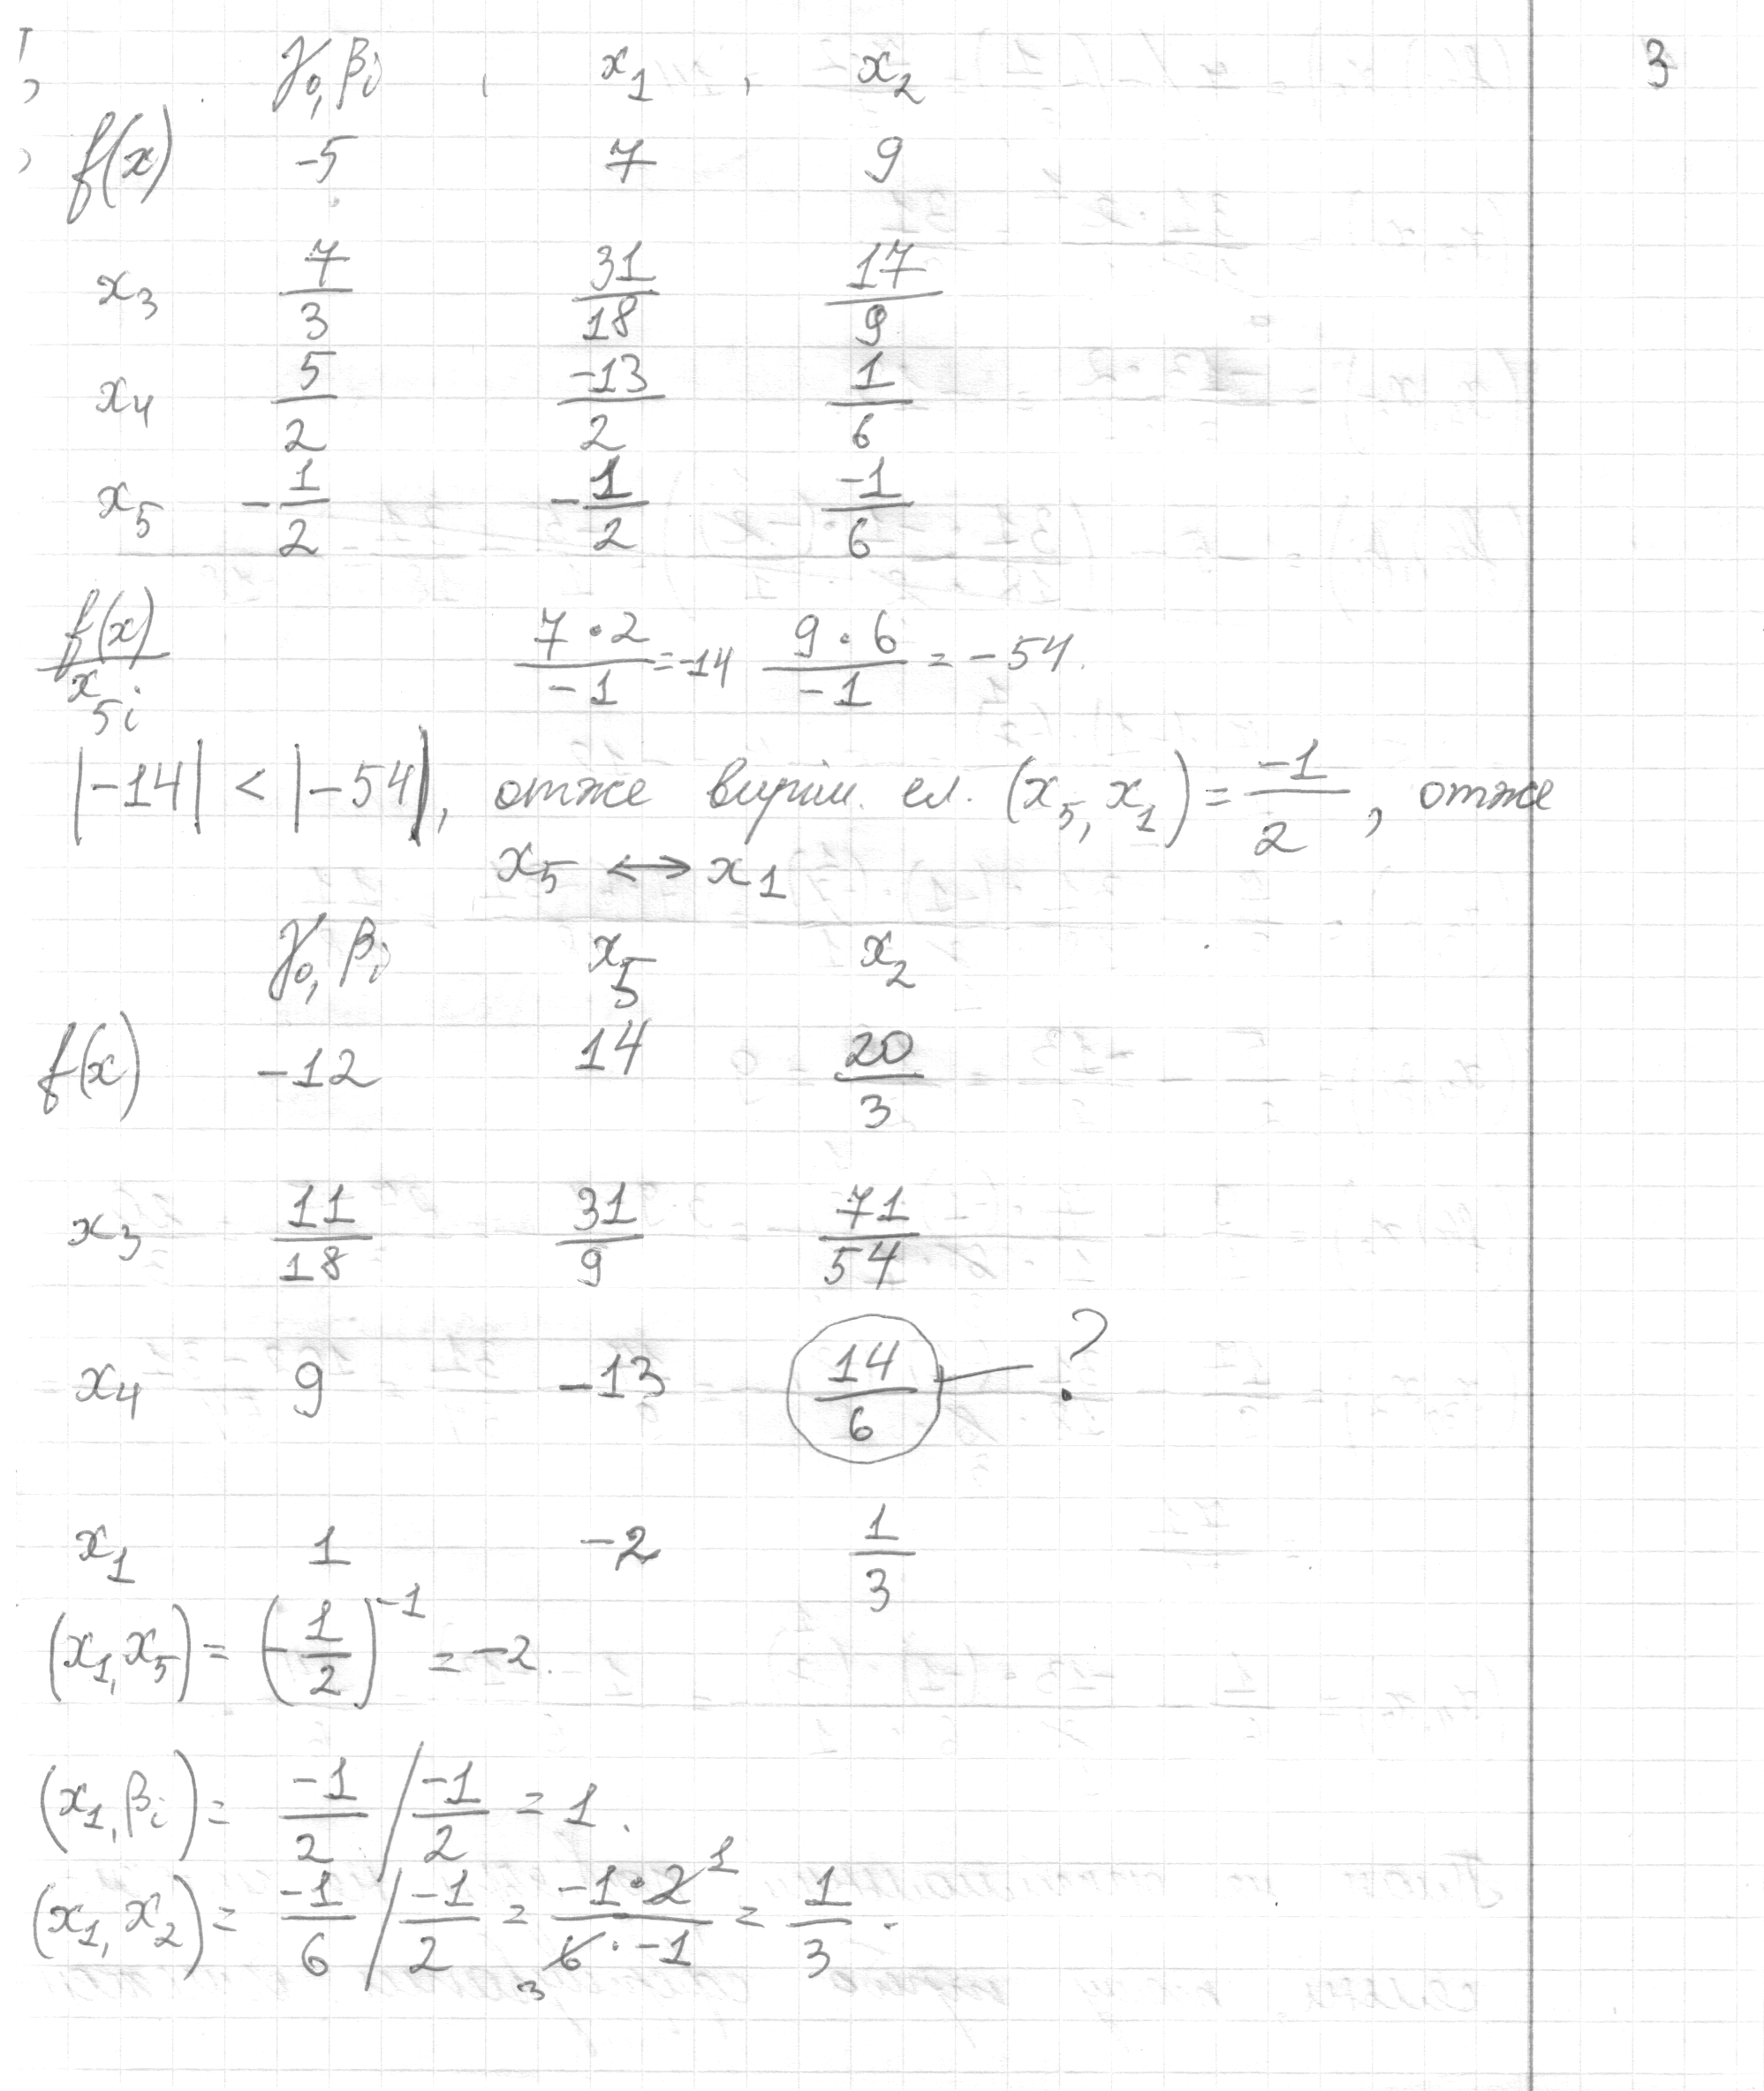 γ₀, βᵢ , x₁ , x₂ 3
f(x) -5 7 9
x₃ 7/3 31/18 17/9
x₄ 5/2 -13/2 1/6
x₅ -1/2 -1/2 -1/6
f(x)/x₅ᵢ 7·2/-1 = -14 9·6/-1 = -54.
|-14| < |-54|, отже виріш. ел. (x₅, x₁) = -1/2, отже
x₅ ↔ x₁
γ₀, βᵢ x₅ x₂
f(x) -12 14 20/3
x₃ 11/18 31/9 71/54
x₄ 9 -13 14/6 — ?
x₁ 1 -2 1/3
(x₁, x₅) = (-1/2)⁻¹ = -2.
(x₁, βᵢ) = -1/2 / -1/2 = 1.
(x₁, x₂) = -1/6 / -1/2 = -1·2 1/6·-1 3 = 1/3.